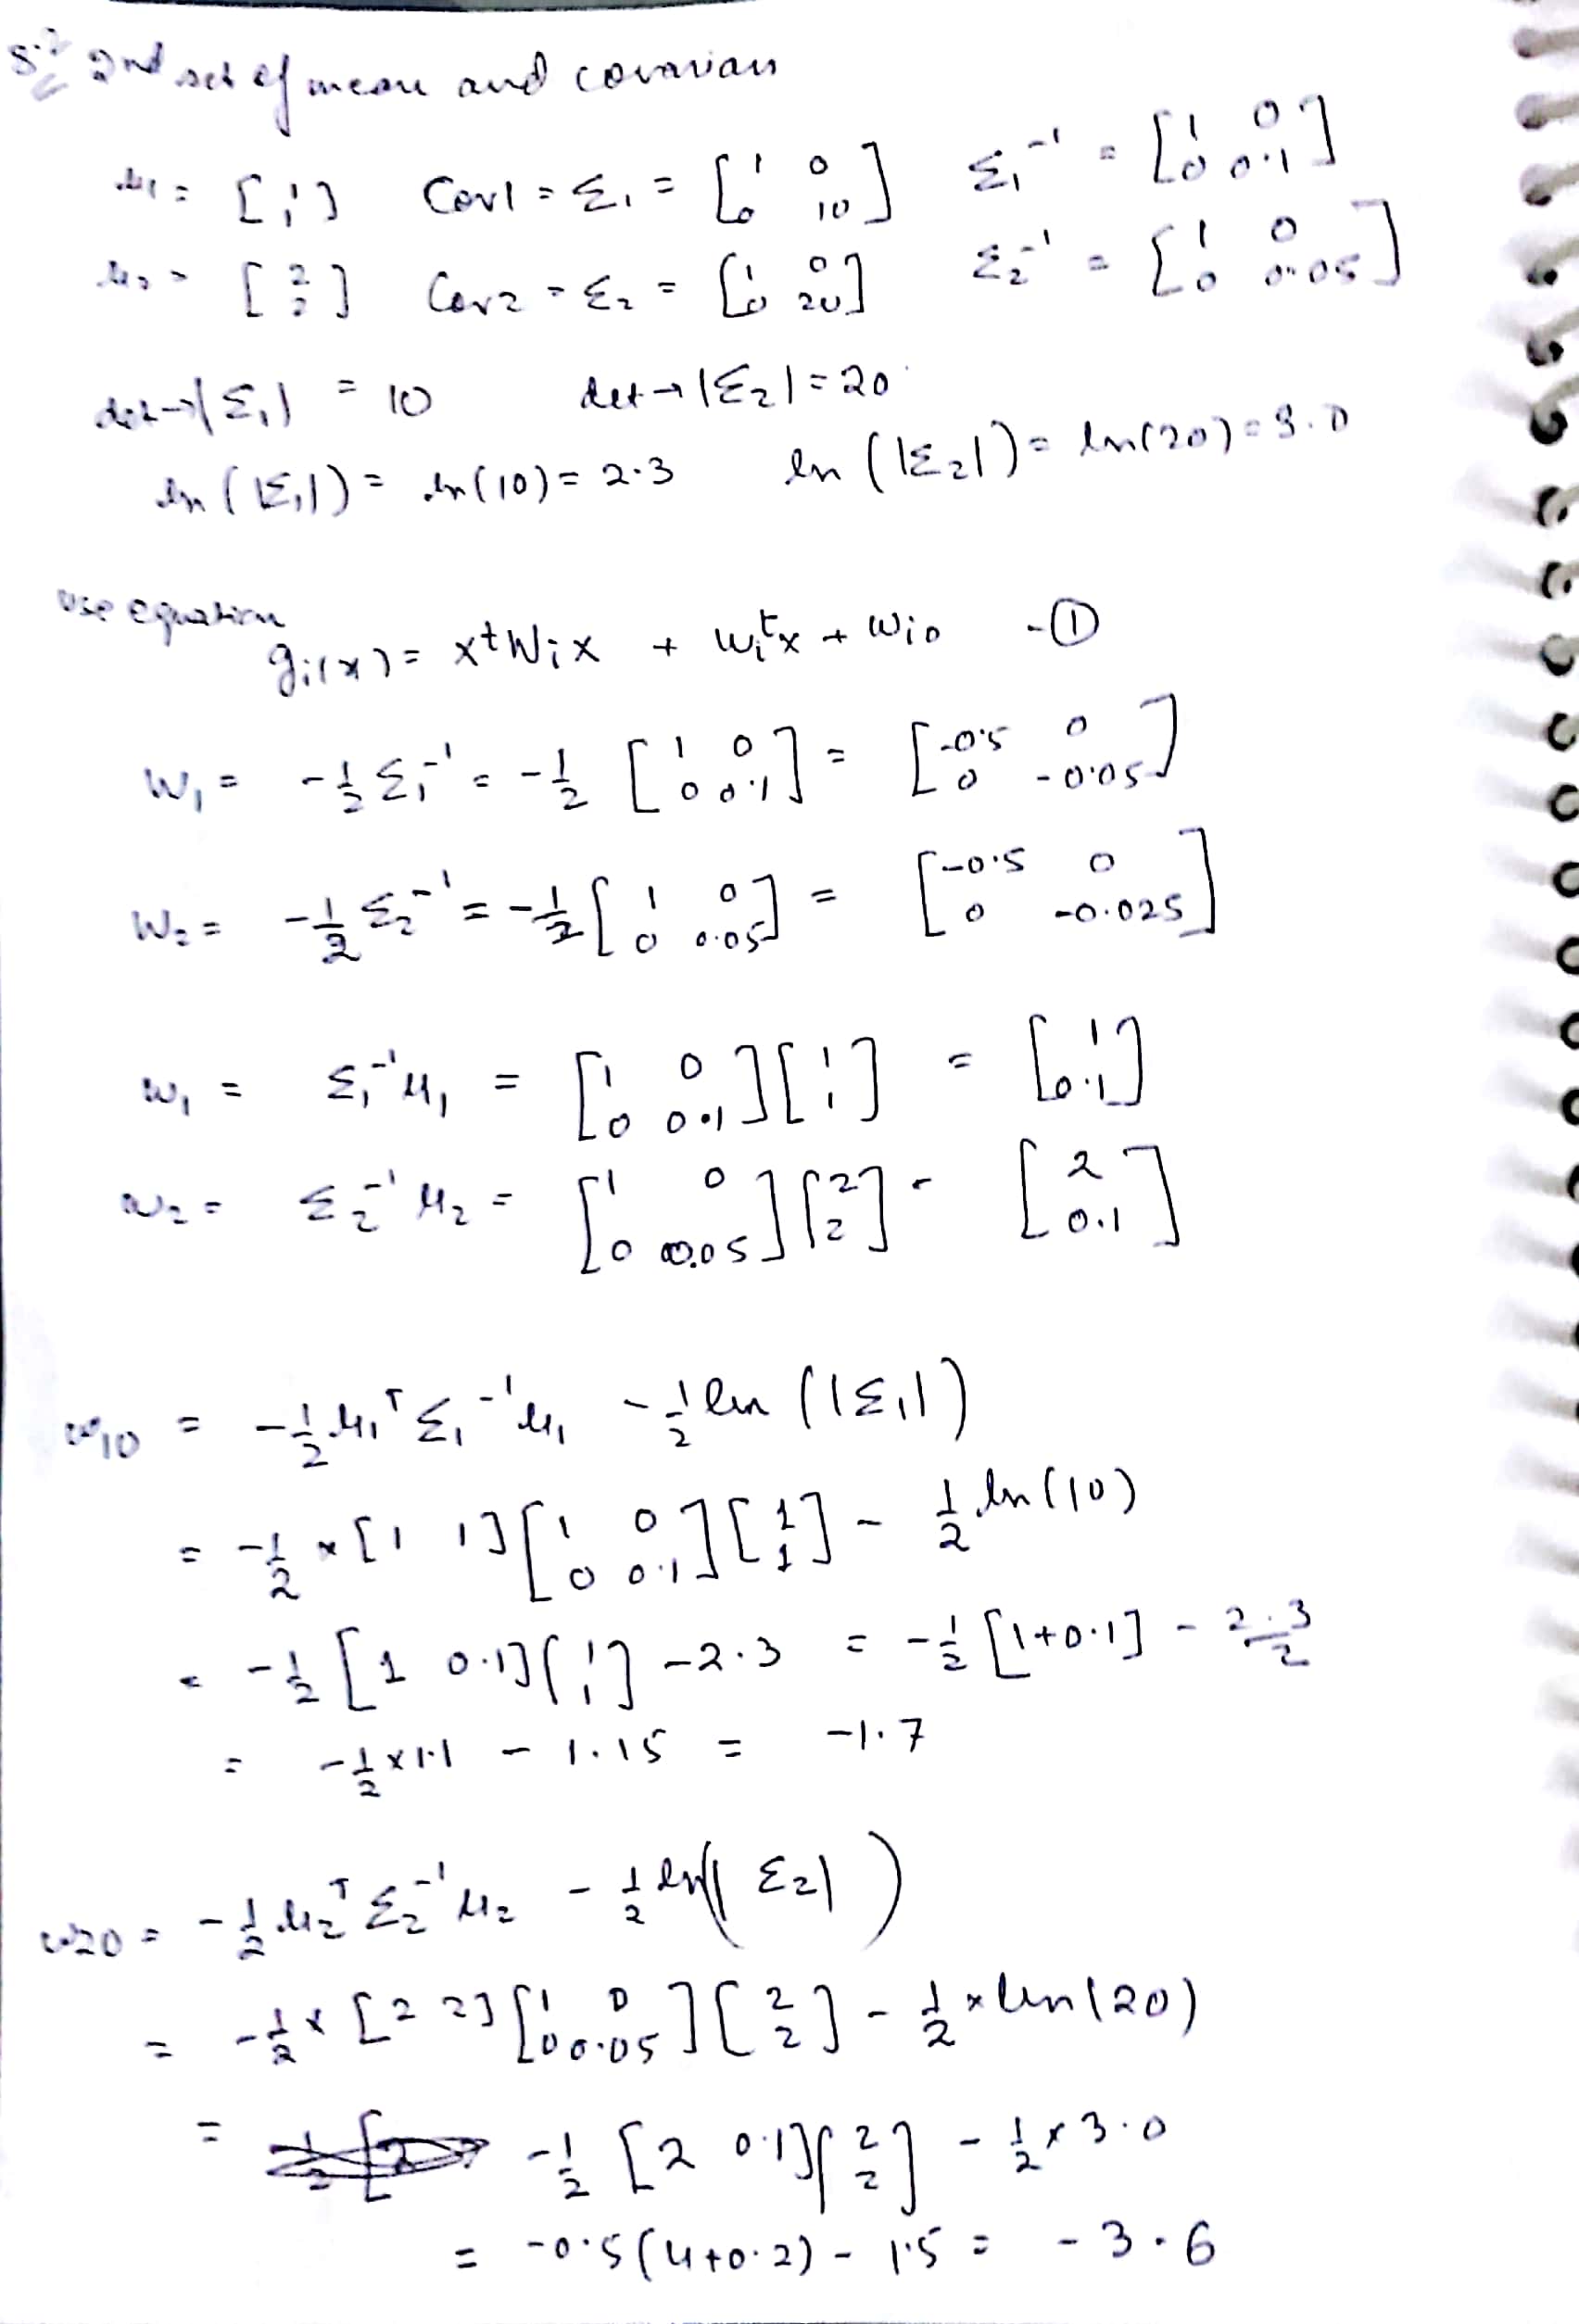 5.2 2nd set of mean and covarian
μ1 = [1 1] Cov1 = Σ1 = [1 0 0 10] Σ1^-1 = [1 0 0 0.1]
μ2 = [2 2] Cov2 = Σ2 = [1 0 0 20] Σ2^-1 = [1 0 0 0.05]
det→|Σ1| = 10 det→|Σ2| = 20
ln(|Σ1|) = ln(10) = 2.3 ln(|Σ2|) = ln(20) = 3.0
use equation
gi(x) = x^t Wi x + wi^t x + wi0 -①
W1 = -1/2 Σ1^-1 = -1/2 [1 0 0 0.1] = [-0.5 0 0 -0.05]
W2 = -1/2 Σ2^-1 = -1/2 [1 0 0 0.05] = [-0.5 0 0 -0.025]
w1 = Σ1^-1 μ1 = [1 0 0 0.1][1 1] = [1 0.1]
w2 = Σ2^-1 μ2 = [1 0 0 0.05][2 2] = [2 0.1]
w10 = -1/2 μ1^T Σ1^-1 μ1 - 1/2 ln(|Σ1|)
= -1/2 × [1 1][1 0 0 0.1][1 1] - 1/2 ln(10)
= -1/2 [1 0.1][1 1] - 2.3 = -1/2 [1+0.1] - 2.3/2
= -1/2 × 1.1 - 1.15 = -1.7
w20 = -1/2 μ2^T Σ2^-1 μ2 - 1/2 ln(|Σ2|)
= -1/2 × [2 2][1 0 0 0.05][2 2] - 1/2 × ln(20)
= -1/2 [2 0.1][2 2] - 1/2 × 3.0
= -0.5(4+0.2) - 1.5 = -3.6